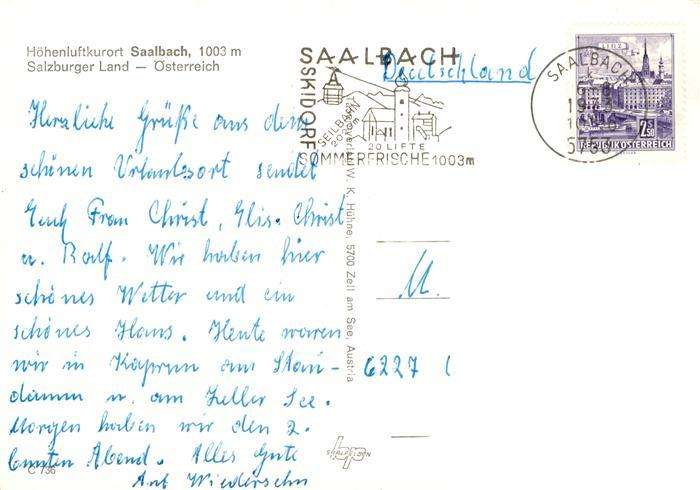 Höhenluftkurort Saalbach, 1003 m
Salzburger Land — Österreich
SAALBACH
SKIDORF
SEILBAHN
20 LIFTE
SOMMERFRISCHE 1003m
SAALBACH
5753
LINZ
2,50
REPUBLIK ÖSTERREICH
Deutschland
Herzliche Grüße aus dem
schönen Urlaubsort sendet
Euch Frau Christ, Elis. Christ
u. Ralf. Wir haben hier
schönes Wetter und ein
schönes Haus. Heute waren
wir in Kaprun am Stau-
damm u. am Zeller See.
Morgen haben wir den 2.
bunten Abend. Alles Gute
Auf Wiedersehn
W. K. Hühne, 5700 Zell am See, Austria
U.
6227
C 736